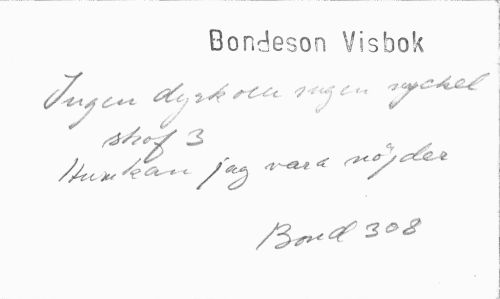 Bondeson Visbok
Ingen dyrk och ingen nyckel
strof 3
Hur kan jag vara nöjder
Bond 308